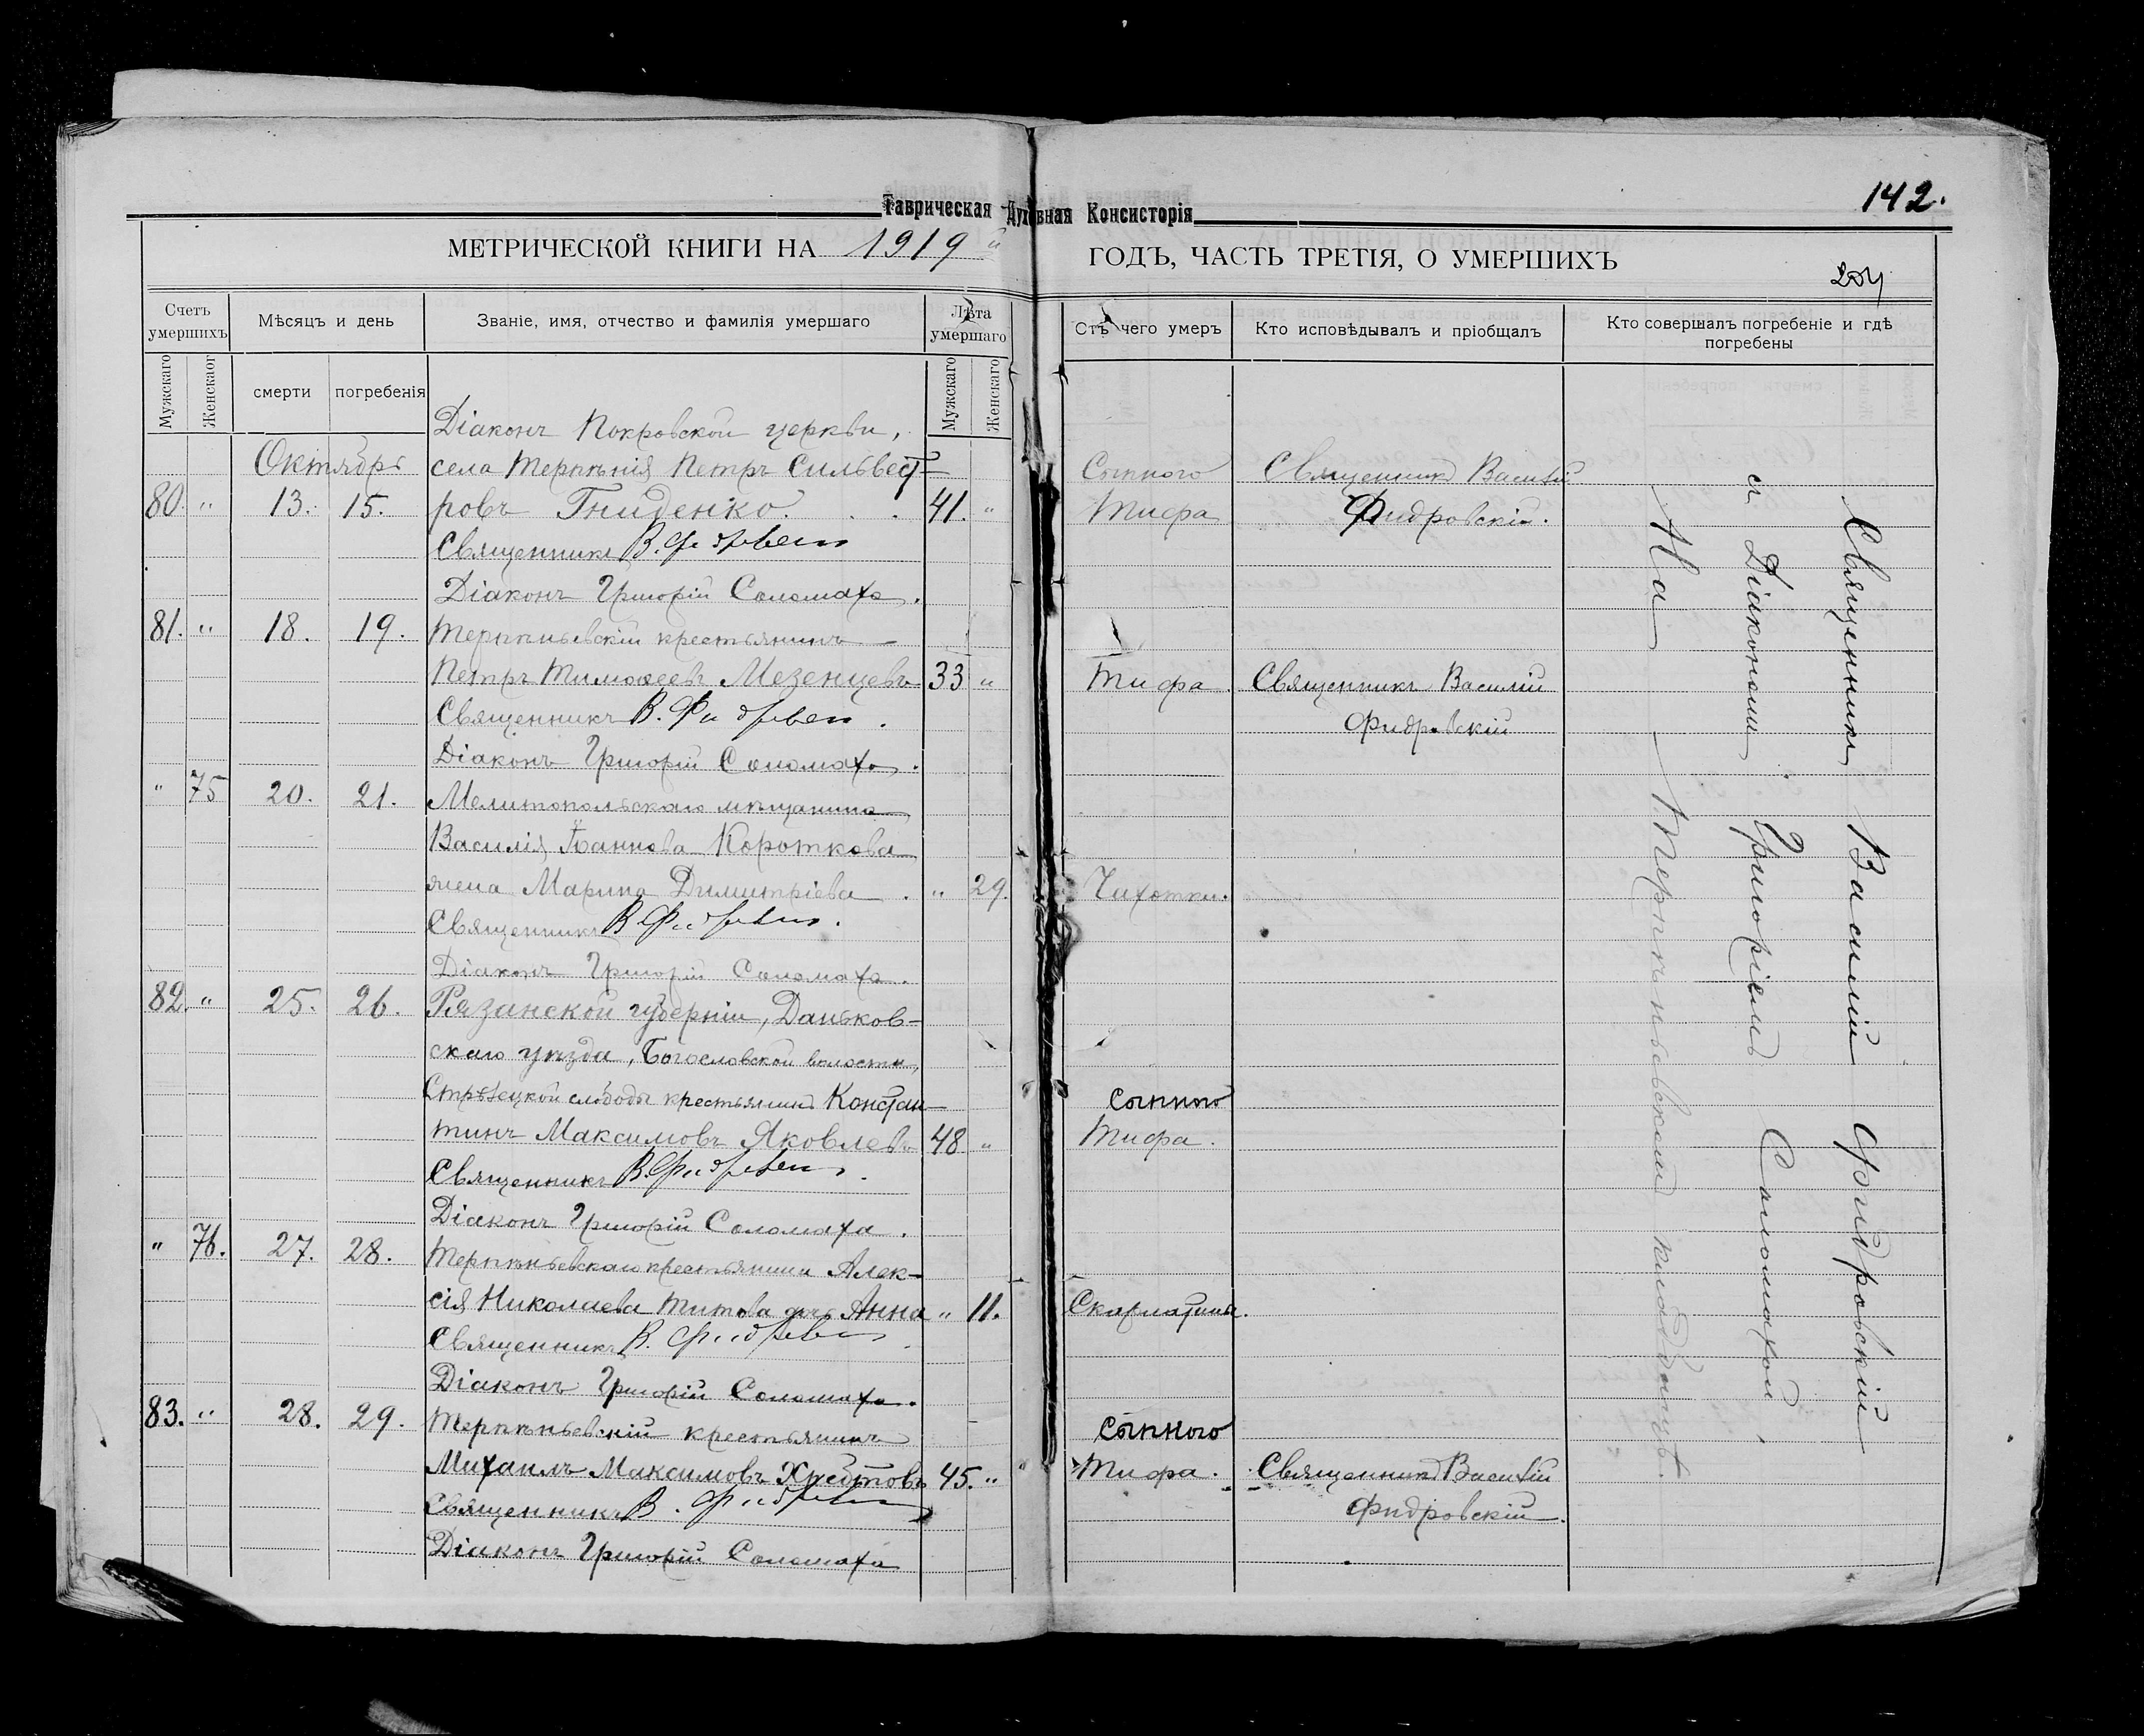 142.
Таврическая Духовная Консисторія
МЕТРИЧЕСКОЙ КНИГИ НА 1919 й ГОДЪ, ЧАСТЬ ТРЕТІЯ, О УМЕРШИХЪ
204
Счетъ умершихъ
Мужскаго
Женскаго
Мѣсяцъ и день
смерти
погребенія
Званіе, имя, отчество и фамилія умершаго
Лѣта умершаго
Мужскаго
Женскаго
Отъ чего умеръ
Кто исповѣдывалъ и пріобщалъ
Кто совершалъ погребеніе и гдѣ погребены
Діаконъ Покровской церкви,
Октябрь села Терпѣнія Петръ Сильвест- Сыпного Священникъ Василій
80. " 13. 15. ровъ Гниденко. 41. " Тифа Фидровскій.
Священникъ В. Фидровскій
Діаконъ Григорій Соломаха.
81. " 18. 19. Терпѣньевскій крестьянинъ
Петръ Тимоѳеевъ Мезенцевъ 33 " Тифа. Священникъ Василій
Священникъ В. Фидровскій. Фидровскій
Діаконъ Григорій Соломаха.
" 75 20. 21. Мелитопольскаго мѣщанина
Василія Іоаннова Короткова
жена Марина Димитріева. " 29. Чахотки.
Священникъ В. Фидровскій.
Діаконъ Григорій Соломаха.
82. " 25. 26. Рязанской губерніи, Данков-
скаго уѣзда, Богословской волости,
Стрѣлецкой слободы крестьянинъ Констан- Сыпного
тинъ Максимовъ Яковлевъ 48 " Тифа.
Священникъ В. Фидровскій.
Діаконъ Григорій Соломаха.
" 76. 27. 28. Терпѣньевскаго крестьянина Алек-
сія Николаева Титова дочь Анна " 11. Скарлатины.
Священникъ В. Фидровскій
Діаконъ Григорій Соломаха.
83. " 28. 29. Терпѣньевскій крестьянинъ Сыпного
Михаилъ Максимовъ 45. " Тифа. Священникъ Василій
Священникъ В. Фидровскій Фидровскій.
Діаконъ Григорій Соломаха
Священникъ Василій Фидровскій
съ Діакономъ Григоріемъ Соломахой,
На Терпѣньевскомъ кладбищѣ.